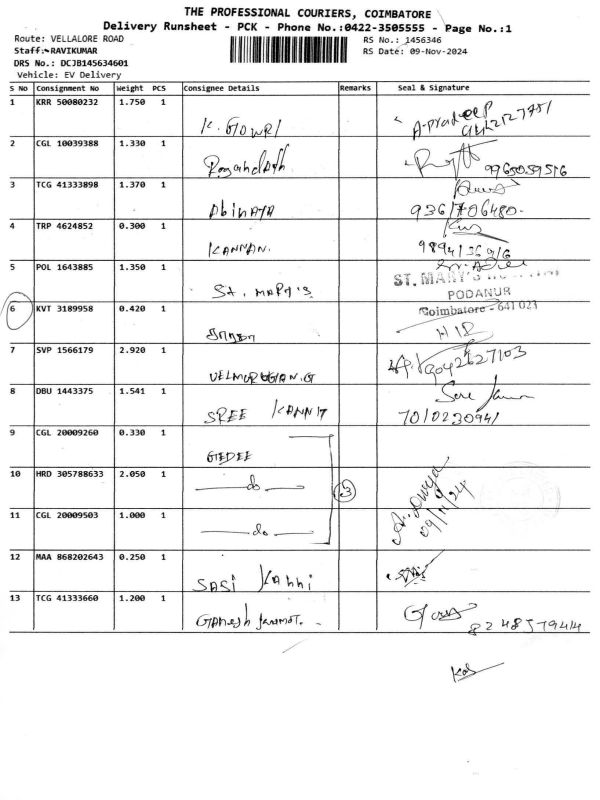 THE PROFESSIONAL COURIERS, COIMBATORE
Delivery Runsheet - PCK - Phone No.:0422-3505555 - Page No.:1
Route: VELLALORE ROAD
RS No.: 1456346
Staff:-RAVIKUMAR
RS Date: 09-Nov-2024
DRS No.: DCJB145634601
Vehicle: EV Delivery
S No Consignment No Weight PCS Consignee Details Remarks Seal & Signature
1 KRR 50080232 1.750 1 K. GOWRI A-pradeep
2 CGL 10039388 1.330 1 9965059516
3 TCG 41333898 1.370 1 Abinaya 9361706480.
4 TRP 4624852 0.300 1 KANNAN.
5 POL 1643885 1.350 1 St. MARY'S
ST. MARY'S
PODANUR
Coimbatore - 641 023
6 KVT 3189958 0.420 1
7 SVP 1566179 2.920 1 VELMURUGAN.G 9042627103
8 DBU 1443375 1.541 1 SREE 7010230941
9 CGL 20009260 0.330 1 GEDEE
10 HRD 305788633 2.050 1 do 3
11 CGL 20009503 1.000 1 do 09/11/24
12 MAA 868202643 0.250 1 SASI
13 TCG 41333660 1.200 1 GANesh 8248579414